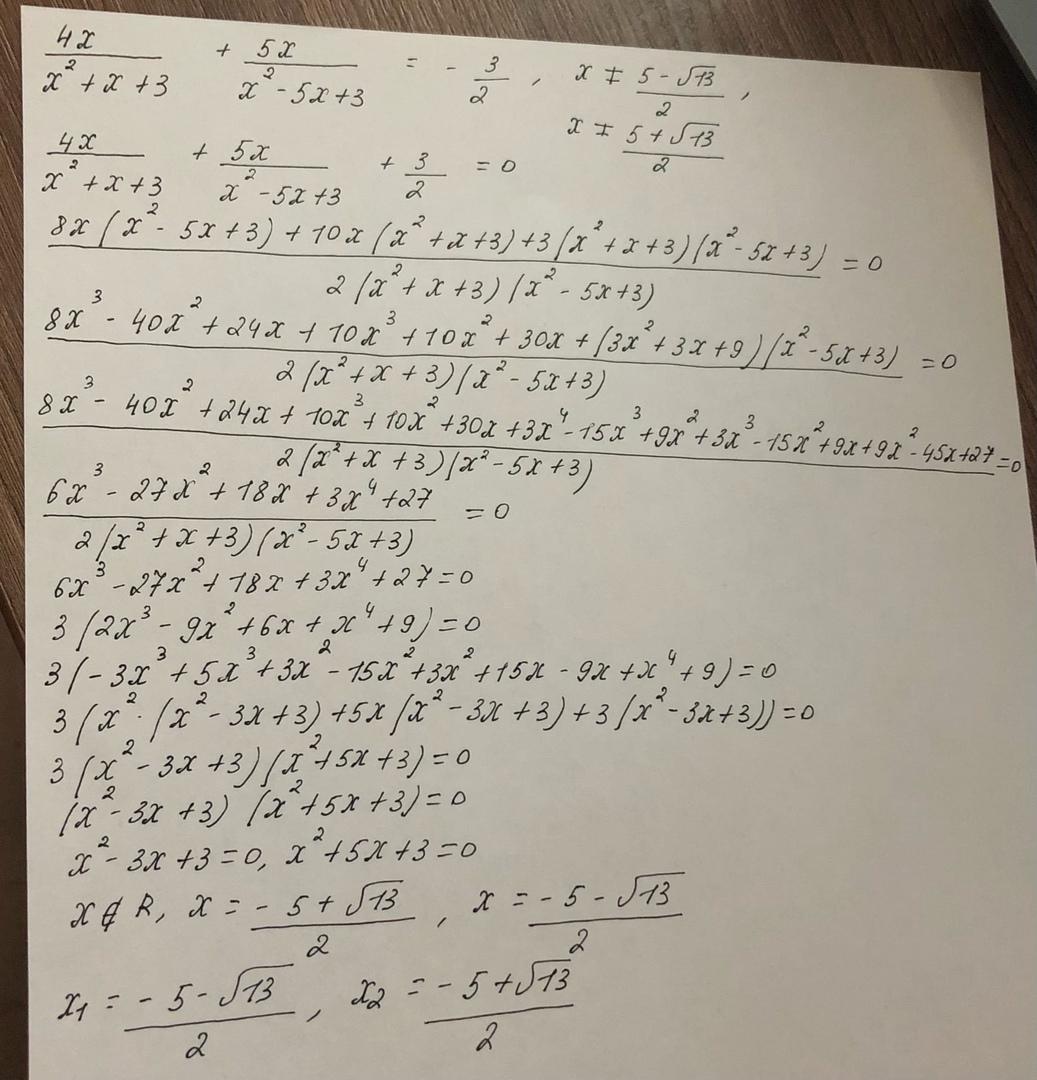 4x/(x² + x + 3) + 5x/(x² - 5x + 3) = - 3/2 , x ≠ (5 - √13)/2 ,
x ≠ (5 + √13)/2
4x/(x² + x + 3) + 5x/(x² - 5x + 3) + 3/2 = 0
(8x(x² - 5x + 3) + 10x(x² + x + 3) + 3(x² + x + 3)(x² - 5x + 3))/(2(x² + x + 3)(x² - 5x + 3)) = 0
(8x³ - 40x² + 24x + 10x³ + 10x² + 30x + (3x² + 3x + 9)(x² - 5x + 3))/(2(x² + x + 3)(x² - 5x + 3)) = 0
(8x³ - 40x² + 24x + 10x³ + 10x² + 30x + 3x⁴ - 15x³ + 9x² + 3x³ - 15x² + 9x + 9x² - 45x + 27)/(2(x² + x + 3)(x² - 5x + 3)) = 0
(6x³ - 27x² + 18x + 3x⁴ + 27)/(2(x² + x + 3)(x² - 5x + 3)) = 0
6x³ - 27x² + 18x + 3x⁴ + 27 = 0
3(2x³ - 9x² + 6x + x⁴ + 9) = 0
3(-3x³ + 5x³ + 3x² - 15x² + 3x² + 15x - 9x + x⁴ + 9) = 0
3(x² · (x² - 3x + 3) + 5x(x² - 3x + 3) + 3(x² - 3x + 3)) = 0
3(x² - 3x + 3)(x² + 5x + 3) = 0
(x² - 3x + 3) (x² + 5x + 3) = 0
x² - 3x + 3 = 0, x² + 5x + 3 = 0
x ∉ R, x = (- 5 + √13)/2 , x = (- 5 - √13)/2
x₁ = (- 5 - √13)/2 , x₂ = (- 5 + √13)/2